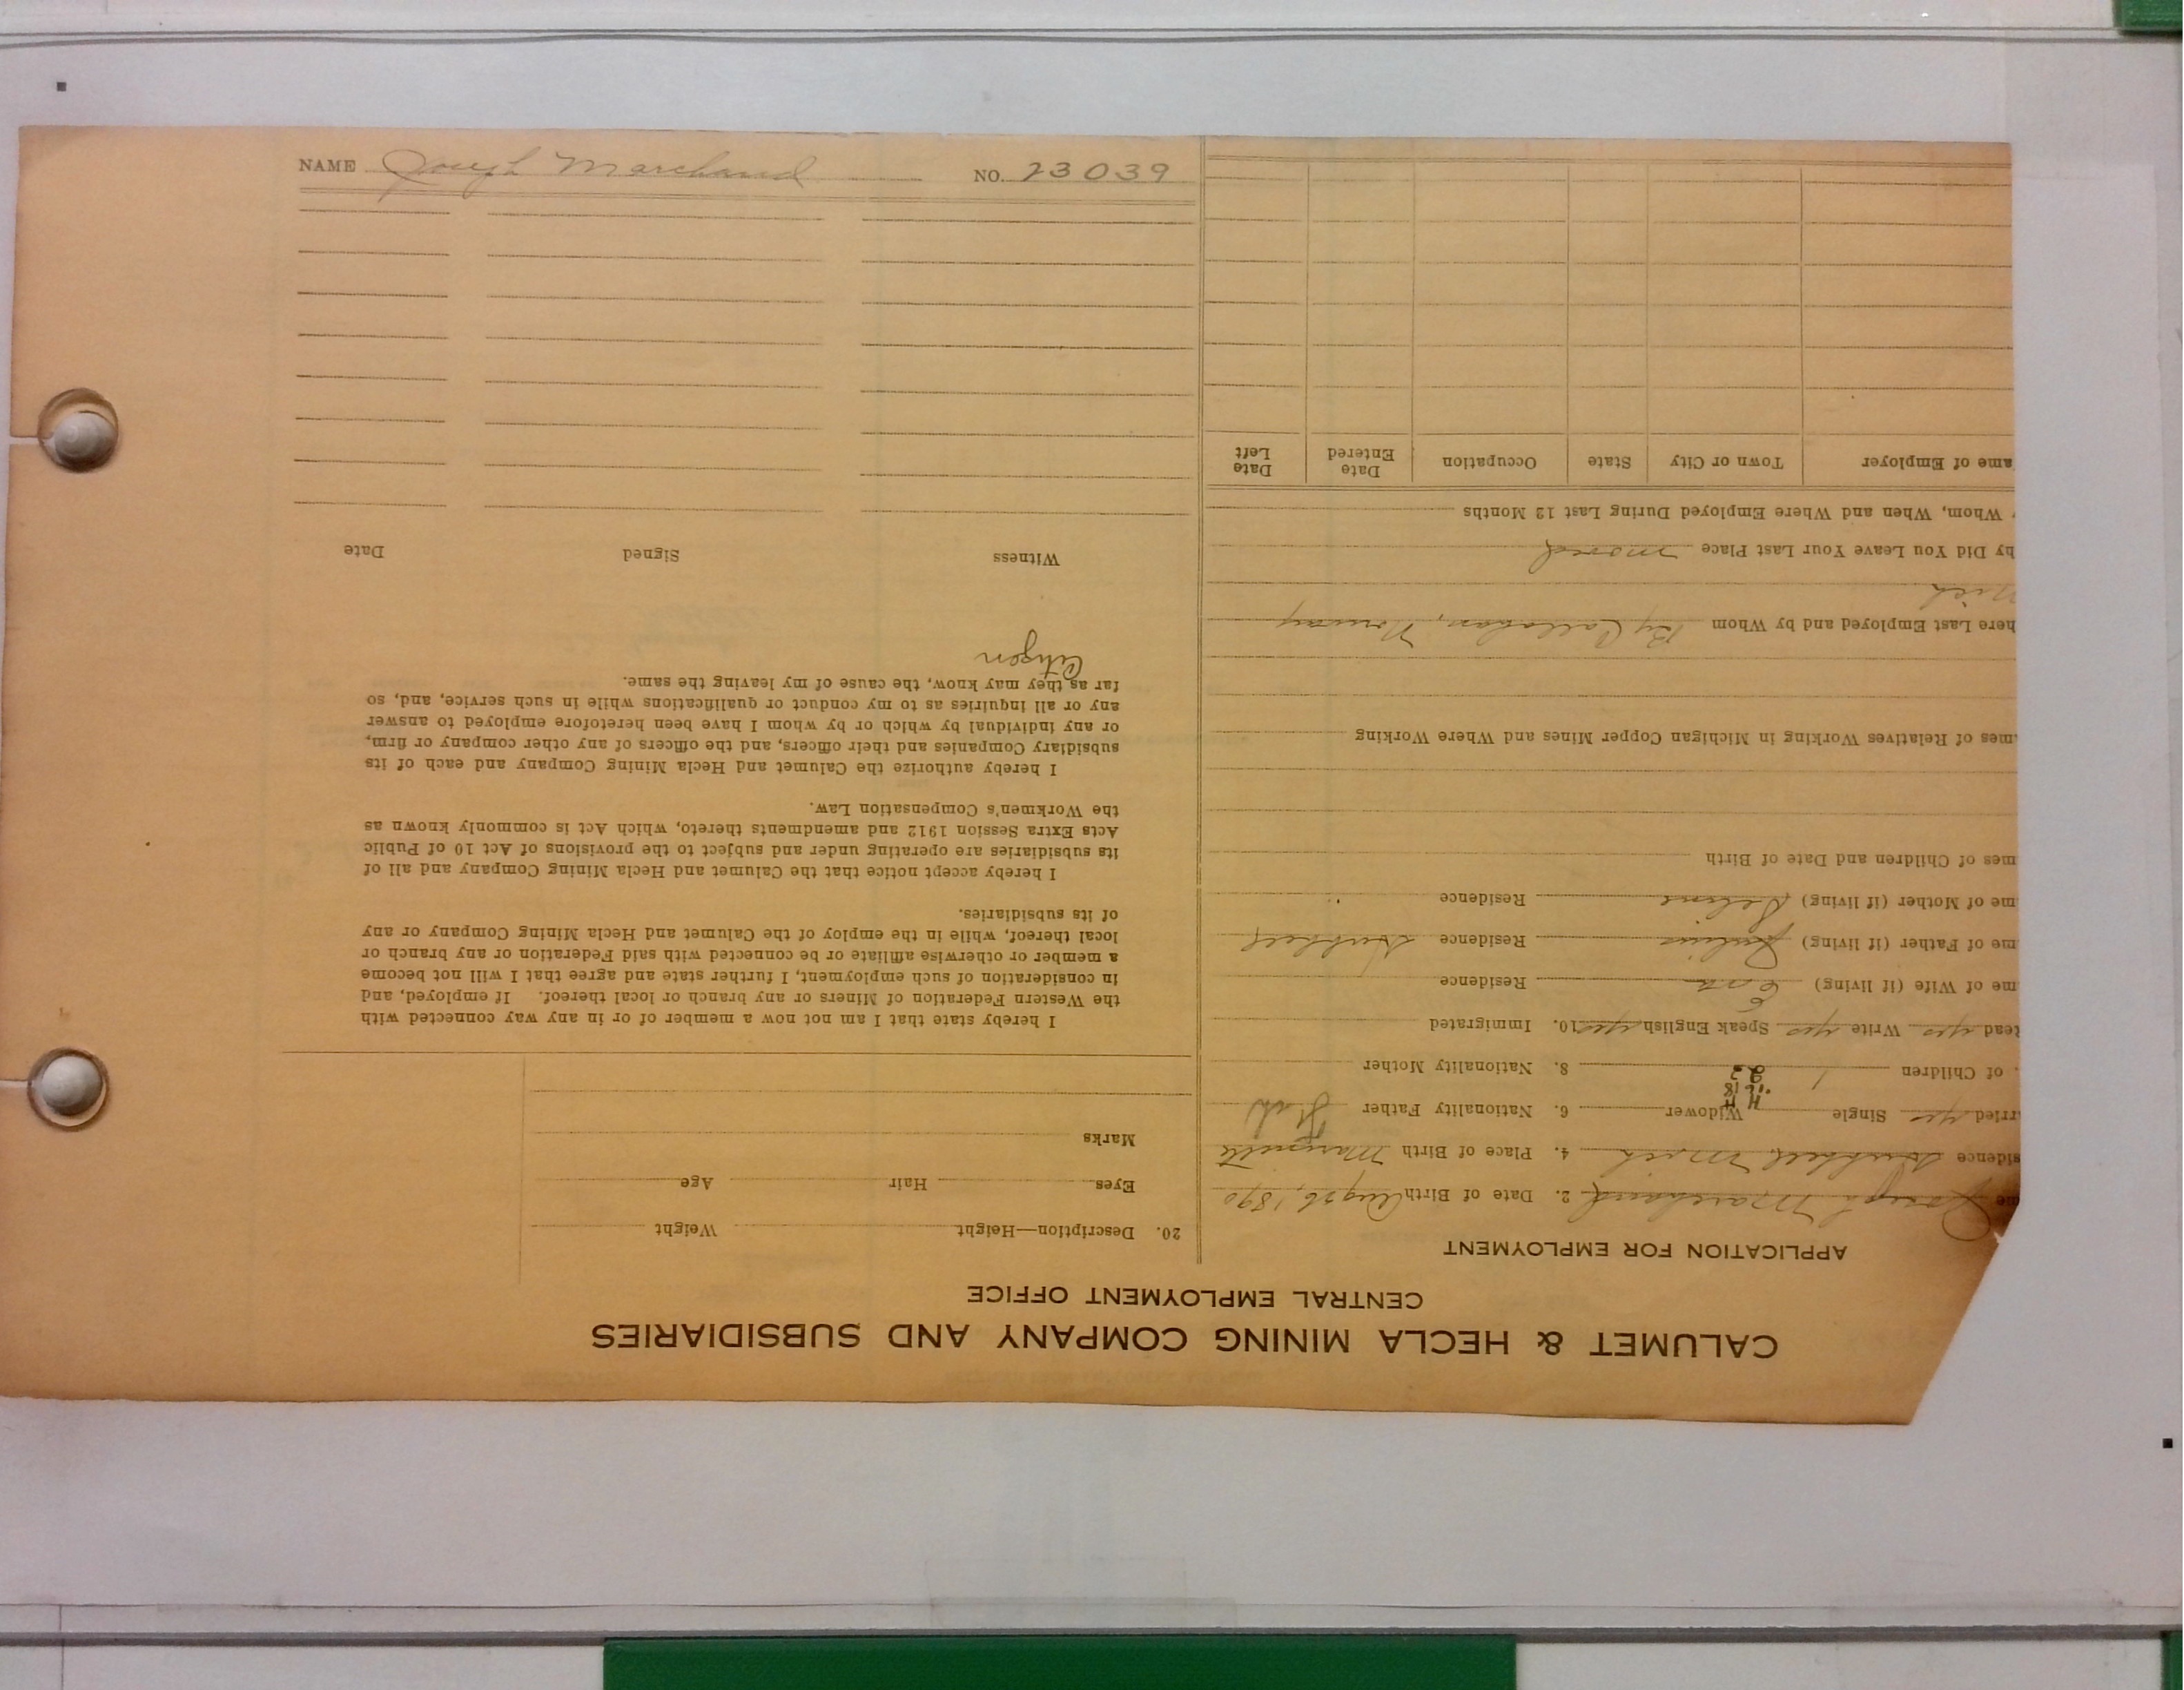 NAME Joseph Marchand NO. 23039
CALUMET & HECLA MINING COMPANY AND SUBSIDIARIES
CENTRAL EMPLOYMENT OFFICE
APPLICATION FOR EMPLOYMENT
me Joseph Marchand 2. Date of Birth Aug 26, 1890
sidence Hubbell Mich 4. Place of Birth Marquette
rried yes Single Widower 6. Nationality Father
. of Children 1 8. Nationality Mother
Read yes Write yes Speak English yes 10. Immigrated
me of Wife (if living) Residence
me of Father (if living) Residence Hubbell
me of Mother (if living) Residence "
mes of Children and Date of Birth
mes of Relatives Working in Michigan Copper Mines and Where Working
here Last Employed and by Whom Norway
Mich
hy Did You Leave Your Last Place moved
Whom, When and Where Employed During Last 12 Months
ame of Employer Town or City State Occupation Date Entered Date Left
20. Description—Height Weight
Eyes Hair Age
Marks
I hereby state that I am not now a member of or in any way connected with
the Western Federation of Miners or any branch or local thereof. If employed, and
in consideration of such employment, I further state and agree that I will not become
a member or otherwise affiliate or be connected with said Federation or any branch or
local thereof, while in the employ of the Calumet and Hecla Mining Company or any
of its subsidiaries.
I hereby accept notice that the Calumet and Hecla Mining Company and all of
its subsidiaries are operating under and subject to the provisions of Act 10 of Public
Acts Extra Session 1912 and amendments thereto, which Act is commonly known as
the Workmen's Compensation Law.
I hereby authorize the Calumet and Hecla Mining Company and each of its
subsidiary Companies and their officers, and the officers of any other company or firm,
or any individual by which or by whom I have been heretofore employed to answer
any or all inquiries as to my conduct or qualifications while in such service, and, so
far as they may know, the cause of my leaving the same.
Citizen
Witness Signed Date